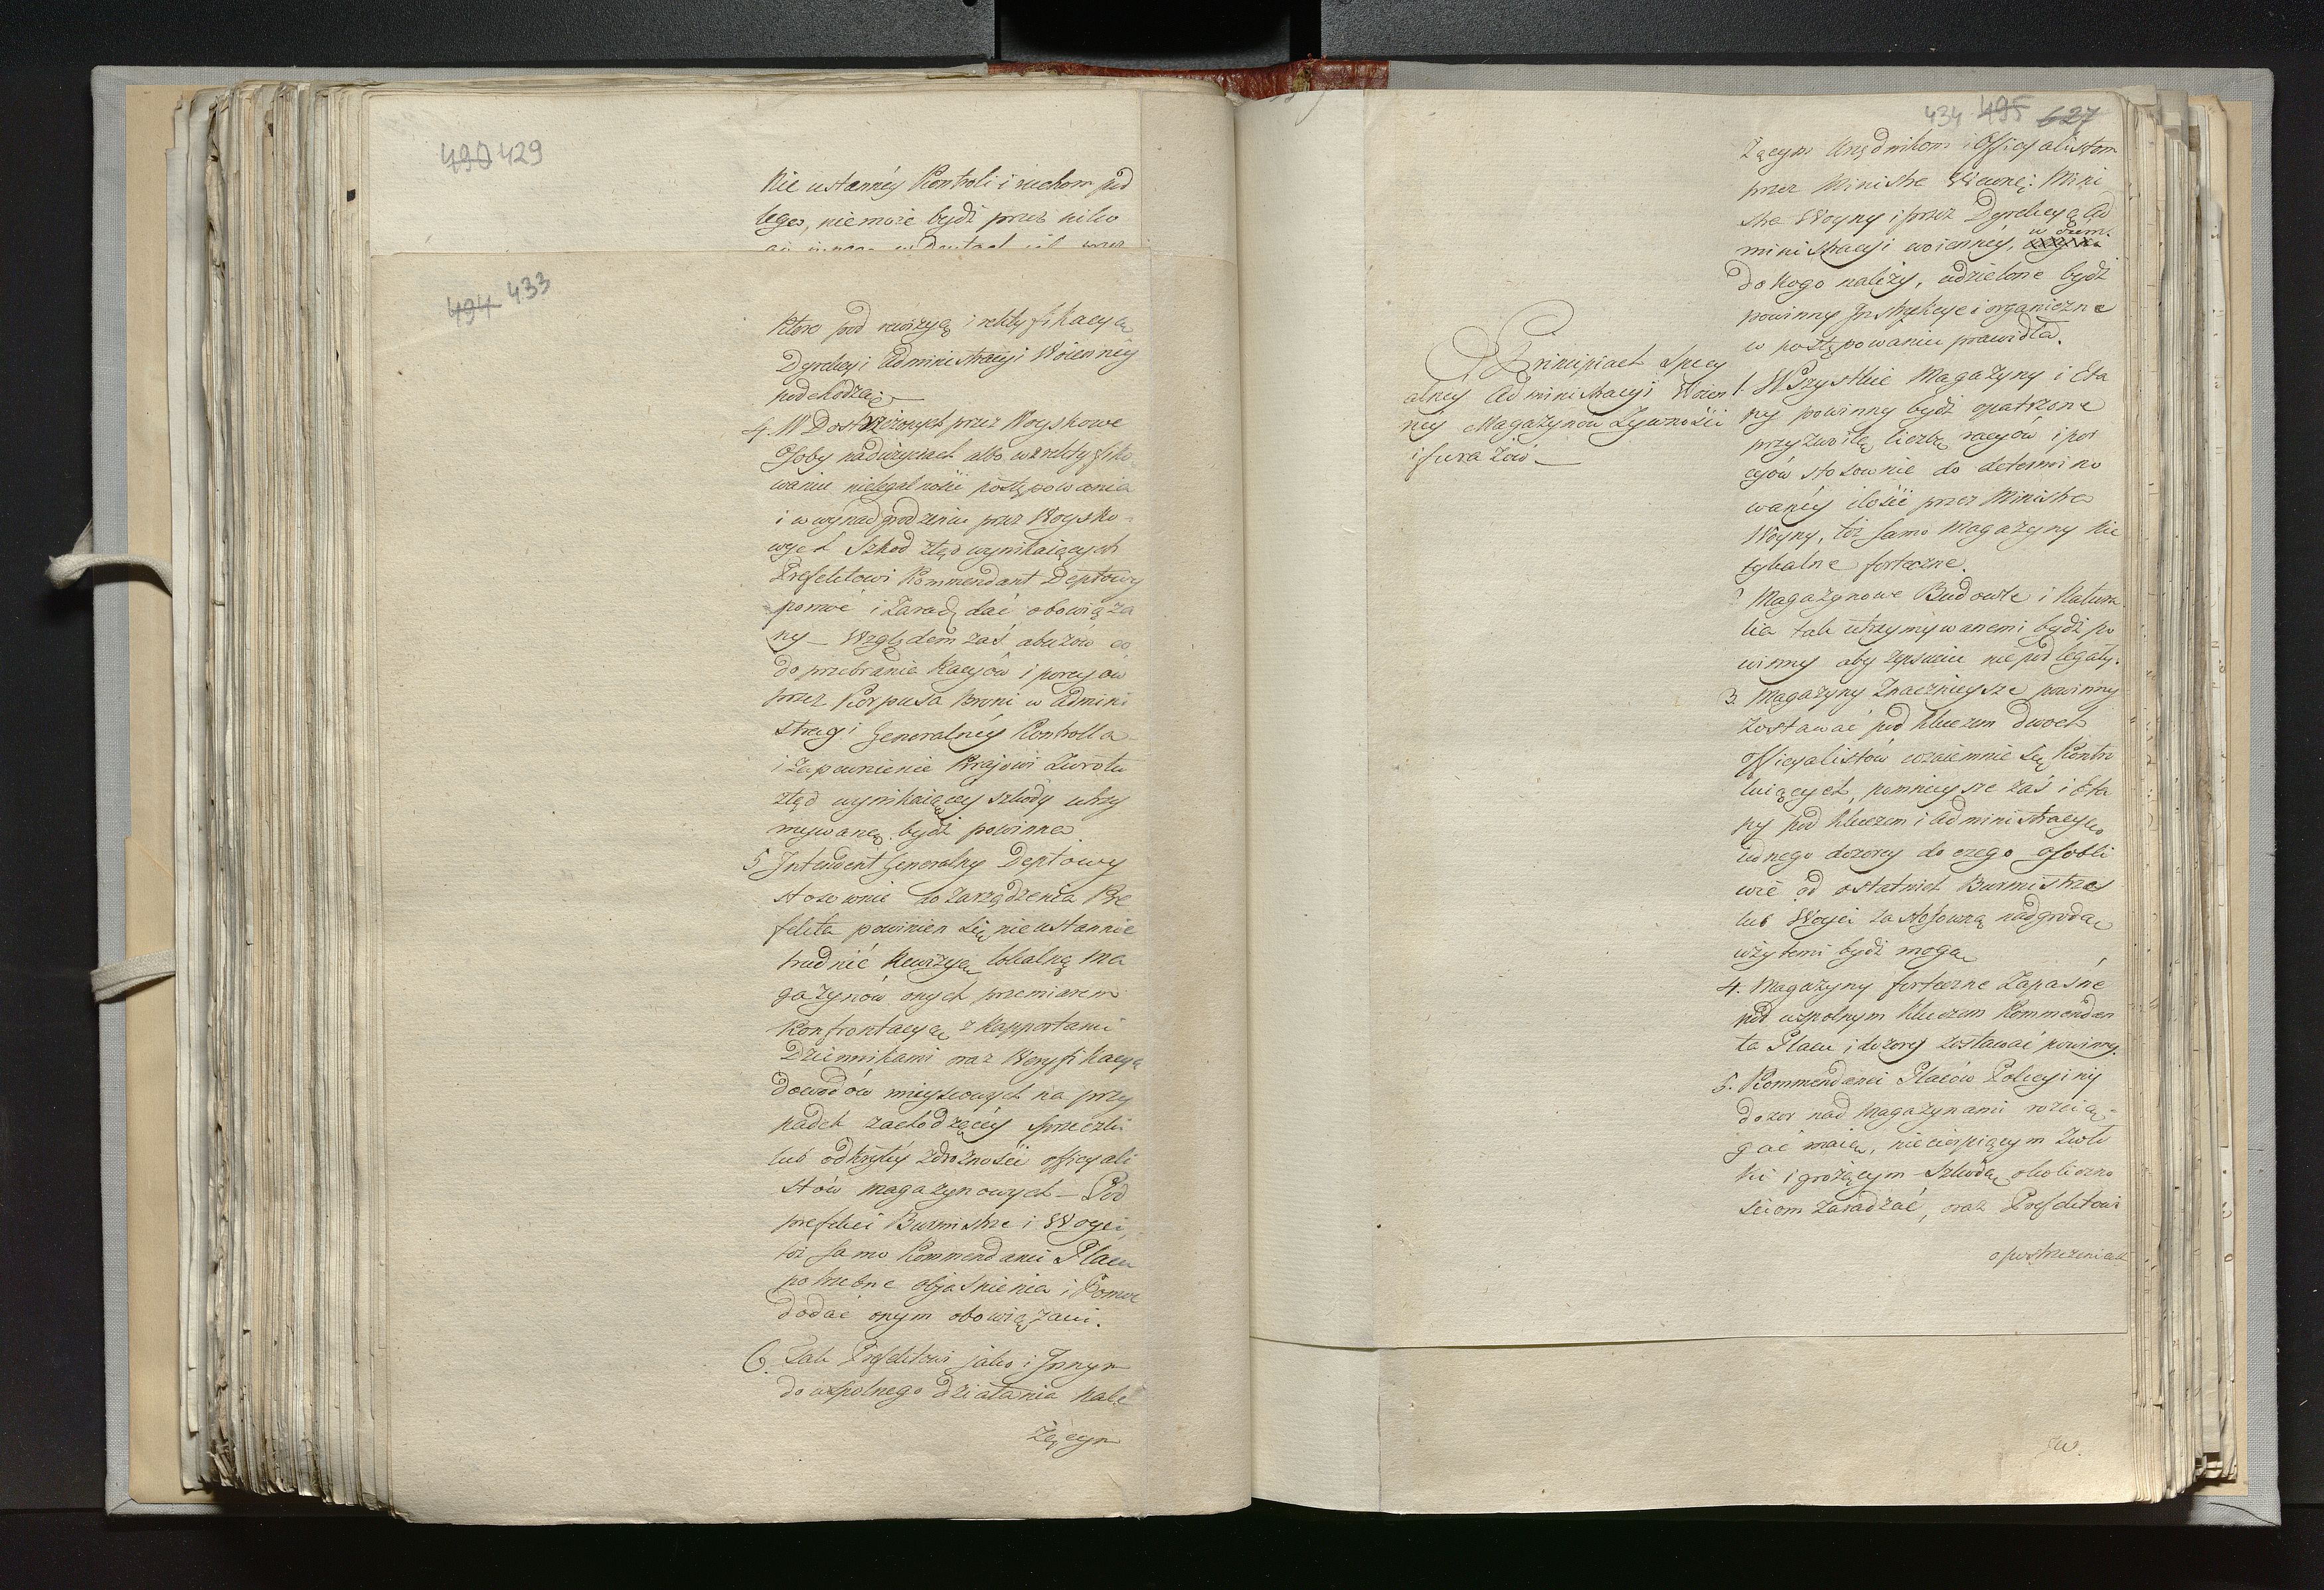 490 429
Nie ustannéy Kontroli i ruchom pod
lega, nie może bydź przez kilko
494 433
które pod rewizyą i rektyfikacyą
Dyrekcyi Administracyi Woienney
podchodzą —
4. W Dostrzeżonych przez Woyskowe
Osoby nadużyciach albo w zrektyfiko
waniu nielegalności postępowania
i w wynadgrodzeniu przez Woysko-
wych Szkod ztąd wynikaiących
Prefektowi Kommendant Deptowy
pomoć i Zaradz dać obowiąza
ny — Względem zaś abuzów co
do przebrania Racyów i porcyów
przez Korpusa Broni w Admini
stracyi Generalnéy Kontrolla
i Zapewnienie Krajowi Zwrotu
ztąd wynikaiącey szkody utrzy
mywaną bydź powinna
5 Intendent Generalny Deptowy
stosownie do zarządzenia Pre
fekta powinien się nieustannie
trudnić Rewizyą lokalną Ma
gazynów onych przemiarem
Konfrontacyą z Rapportami
Dziennikami oraz Weryfikacyą
dowodów mieyscowych na przy
padek zachodzącéy sprzeczki
lub odkrytéy zdrożności officyali
stów magazynowych — Pod
prefekci Burmistrze i Woyci,
toż samo Kommendanci Placu
potrzebne objaśnienia i Pomoc
dodać onym obowiązani.
6. Tak Prefektowi jako i Innym
do wspolnego działania nale
żącym
434 495 627
żącym Urzędnikom i Officyalistom
przez Ministra Wewnę: Mini
stra Woyny i przez Dyrekcyą Ad
w czem
ministracyi woiennéy,
do kogo należy, udzielone bydź
powinny Instrukcye i organiczne
w postępowaniu prawidła.
O Principiach Specy
alney Administracyi Woien
néy Magazynów Żywności
i furażów —
1. Wszystkie Magazyny i Eta
py powinny bydź opatrzone
przyzwoitą liczbą racyów i por
cyów stosownie do determino
wanéy ilości przez Ministra
Woyny, toż samo Magazyny Nie
tykalne forteczne.
2 Magazynowe Budowle i Natura
lia tak utrzymywanemi bydź po
winny aby zepsuciu nie podlegały.
3. Magazyny Znacznieysze powinny
zostawać pod kluczem dwoch
officyalistów wzaiemnie się Kontro
luiących, pomnieysze zaś i Eta
py pod kluczem i administracyą
iednego dozorcy do czego osobli
wie od ostatnich Burmistrze
lub Woyci za stosowną nadgrodą
użytemi bydź mogą
4. Magazyny forteczne Zapaśne
pod wspolnym kluczem Kommendan
ta Placu i dozorcy zostawać powinny.
5. Kommendanci Placów Policyiny
dozor nad Magazynami rozcią-
gać maią, niecierpiącym zwło
ki i grożącym szkodą okoliczno
ściom zaradzać, oraz Prefektowi
o postrzeżeniach